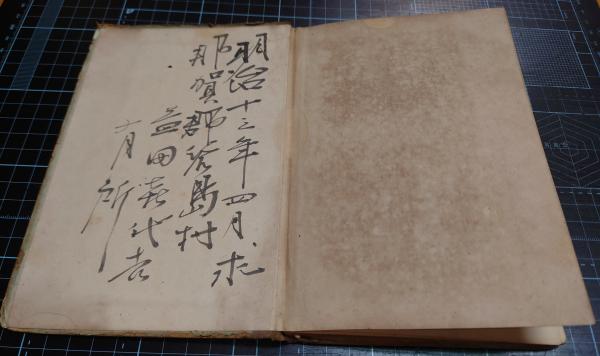 明治十三年四月求
那賀郡答島村
益田喜代吉
月